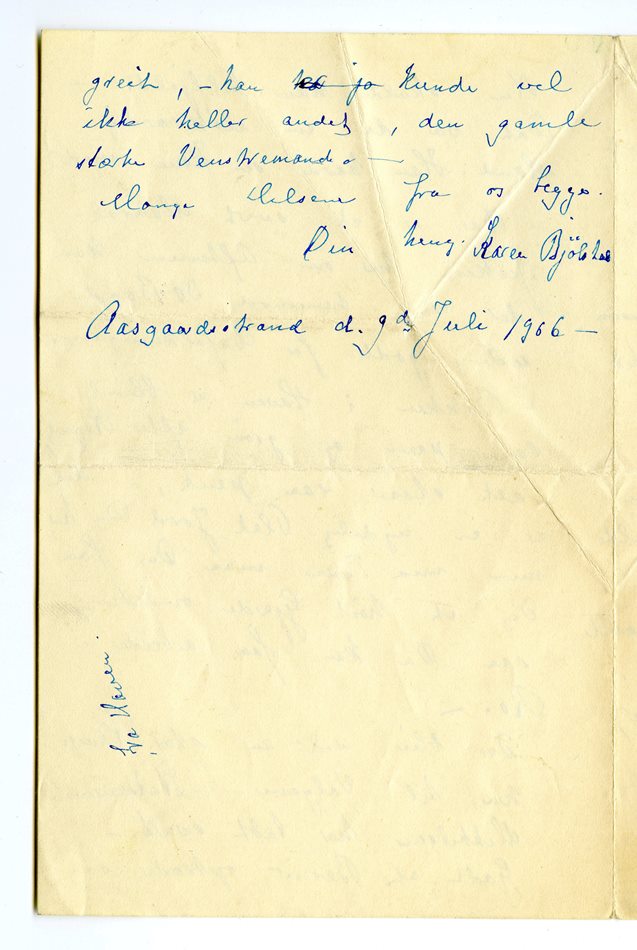 greit, – han ka jo kunde vel
ikke heller andet, den gamle
stærke Venstremand. –
Mange Hilsener fra os begge.
Din heng. Karen Bjölstad
Aasgaardsstrand d. 9de Juli 1906 –
Fra Karen.